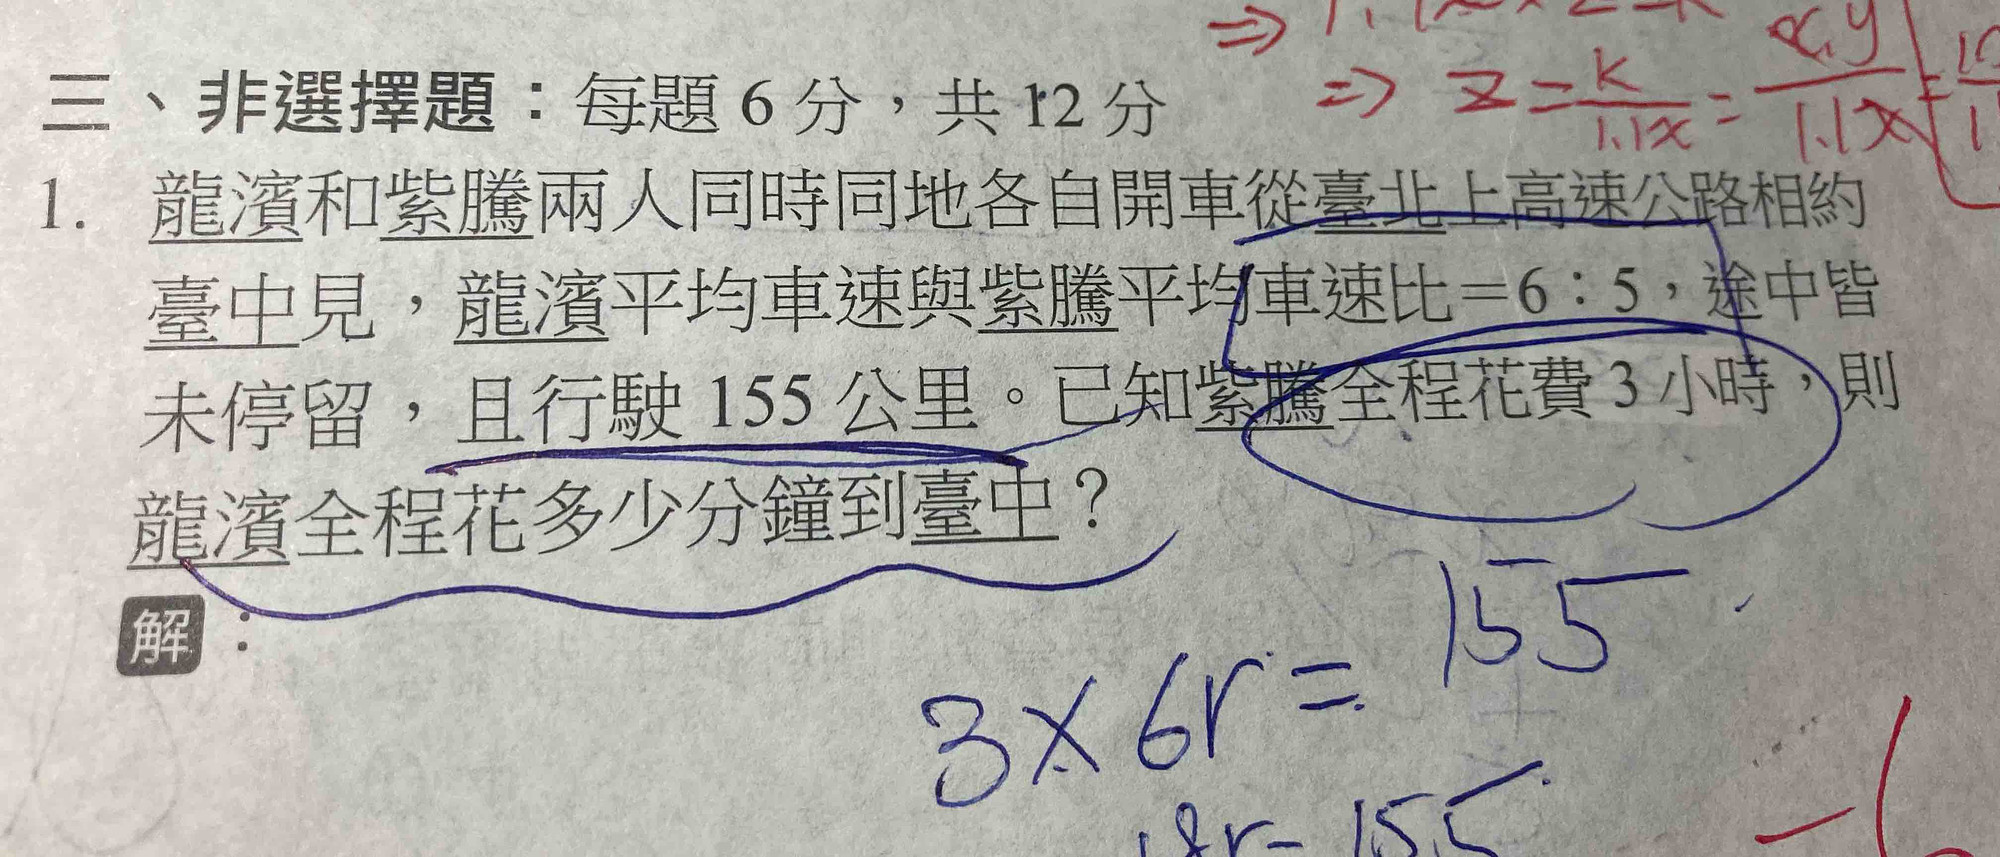 ⇒ z = k/1.1x = x.y/1.1x =
三、非選擇題：每題 6 分，共 12 分
1. 龍濱和紫騰兩人同時同地各自開車從臺北上高速公路相約
臺中見，龍濱平均車速與紫騰平均車速比＝6：5，途中皆
未停留，且行駛 155 公里。已知紫騰全程花費 3 小時，則
龍濱全程花多少分鐘到臺中？
解：
3 × 6r = 155
18r = 155